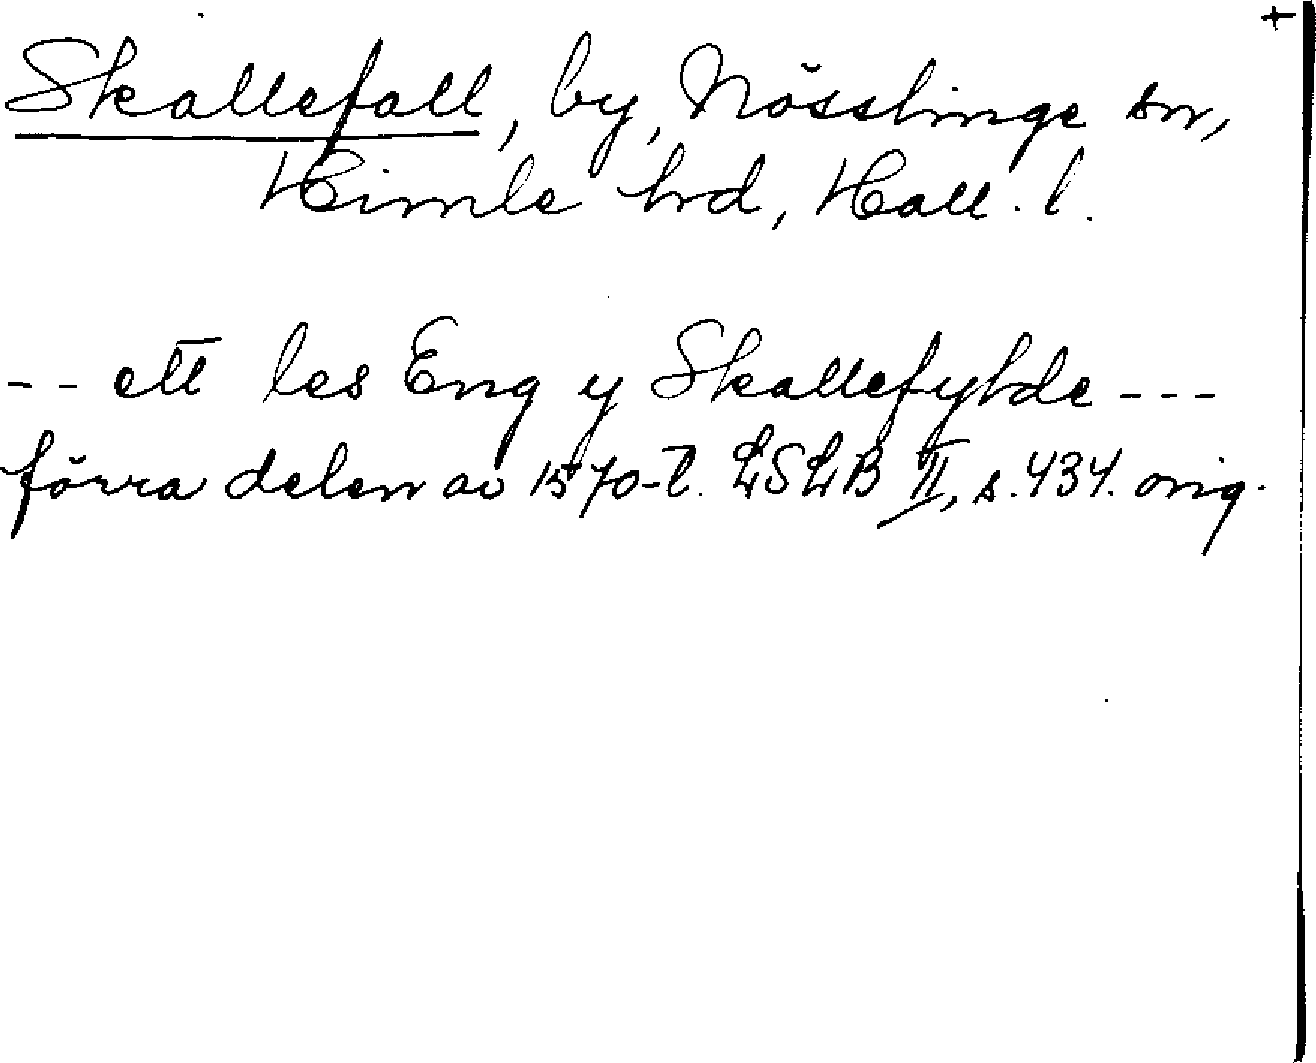 +
Skallefall, by, Nösslinge sn,
Himle hrd, Hall. l.
-- ett les Eng y Skallefylde ---
förra delen av 1570-t. LSLB II, s. 434. orig.